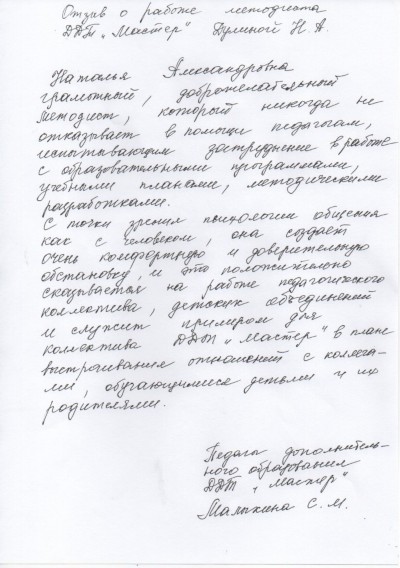 Отзыв о работе методиста
ДДТ „Мастер" Думиной Н. А.
Наталья Александровна
грамотный, доброжелательный
методист, который никогда не
отказывает в помощи педагогам,
испытывающим затруднение в работе
с образовательными программами,
учебными планами, методическими
разработками.
С точки зрения психологии общения
как с человеком, она создаёт
очень комфортную и доверительную
обстановку, и это положительно
сказывается на работе педагогического
коллектива, детских объединений
и служит примером для
коллектива ДДТ „Мастер" в плане
выстраивания отношений с коллега-
ми, обучающимися детьми и их
родителями.
Педагог дополнитель-
ного образования
ДДТ „Мастер"
Малыкина С. М.